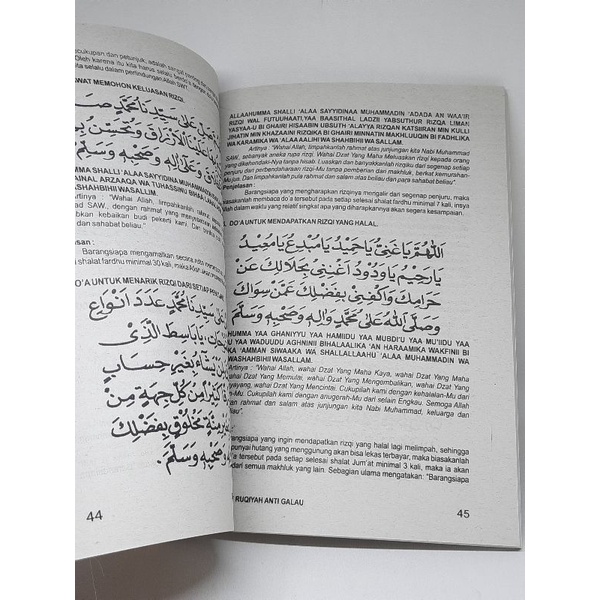 cukupan dan petunjuk, adalah sangat penting dan
Oleh karena itu kita harus selalu berdo'a
ta selalu dalam perlindungan Allah SWT.
WAT MEMOHON KELUASAN RIZQI.
صل على سيدنا محمد
الأرزاق وتحسن
وعلى آله وصحبه وسلم
UMMA SHALLI 'ALAA SAYYIDINAA MUHAMMADIN
INAL ARZAAQA WA TUHASSINU BIHAA
ASHAHBIHII WASALLAM.
Artinya : "Wahai Allah, limpahkanlah rahmat
ad SAW., dengan rahmat yang menyampaikan
ebabkan kebaikan budi pekerti kami. Dan
beliau".
san :
Barangsiapa mengamalkan secara
shalat fardhu minimal 30 kali, maka Allah akan
'A UNTUK MENARIK RIZQI DARI SETIAP
على سيدنا محمد عدد أنواع
يا باسط الذي
يشاء بغير حساب
كثيرا من كل جهة من
منة مخلوق بفضلك
وصحبه وسلم.
44
ALLAAHUMMA SHALLI 'ALAA SAYYIDINAA MUHAMMADIN 'ADADA AN WAA'IR
RIZQI WAL FUTUUHAATI,YAA BAASITHAL LADZII YABSUTHUR RIZQA LIMAN
YASYAA-U BI GHAIRI HISAABIN UBSUTH 'ALAYYA RIZQAN KATSIIRAN MIN KULLI
JIHATIN MIN KHAZAAINI RIZQIKA BI GHAIRI MINNATIN MAKHLUUQIN BI FADHLIKA
WA KARAMIKA WA 'ALAA AALIHI WA SHAHBIHII WA SALLAM.
Artinya : "Wahai Allah, limpahkanlah rahmat atas junjungan kita Nabi Muhammad
SAW, sebanyak aneka rupa rizqi. Wahai Dzat Yang Maha Meluaskan rizqi kepada orang
yang dikehendaki-Nya tanpa hisab. Luaskan dan banyakkanlah rizqiku dari segenap penjuru
dari perbendaharaan rizqi-Mu tanpa pemberian dari makhluk, berkat kemurahan-
Mu jua. Dan limpahkanlah pula rahmat dan salam atas beliau dan para sahabat beliau".
Penjelasan :
Barangsiapa yang mengharapkan rizqinya mengalir dari segenap penjuru, maka
biasakanlah membaca do'a tersebut pada setiap selesai shalat fardhu minimal 7 kali, insya
Allah dalam waktu yang relatif singkat apa yang diharapkannya akan segera kesampaian.
DO'A UNTUK MENDAPATKAN RIZQI YANG HALAL.
اللهم يا غني يا حميد يا مبدئ يا معيد
يا رحيم يا ودود أغنني بحلالك عن
حرامك واكفني بفضلك عمن سواك
وصلى الله على محمد وآله وصحبه وسلم
HUMMA YAA GHANIYYU YAA HAMIIDU YAA MUBDI'U YAA MU'IIDU YAA
YAA WADUUDU AGHNINII BIHALAALIKA 'AN HARAAMIKA WAKFINII BI
IKA 'AMMAN SIWAAKA WA SHALLALLAAHU 'ALAA MUHAMMADIN WA
WASHAHBIHII WASALLAM.
Artinya : "Wahai Allah, wahai Dzat Yang Maha Kaya, wahai Dzat Yang Maha
wahai Dzat Yang Memulai, wahai Dzat Yang Mengembalikan, wahai Dzat Yang
nyayang, wahai Dzat Yang Mencintai. Cukupilah kami dengan kehalalan-Mu dari
Mu. Cukupilah kami dengan anugerah-Mu dari selain Engkau. Semoga Allah
an rahmat dan salam atas junjungan kita Nabi Muhammad, keluarga dan
liau".
Barangsiapa yang ingin mendapatkan rizqi yang halal lagi melimpah, sehingga
punyai hutang yang menggunung akan bisa lekas terbayar, maka biasakanlah
'a tersebut pada setiap selesai shalat Jum'at minimal 3 kali, maka ia akan
dari semua makhluk yang lain. Sebagian ulama mengatakan: "Barangsiapa
RUQIYAH ANTI GALAU
45